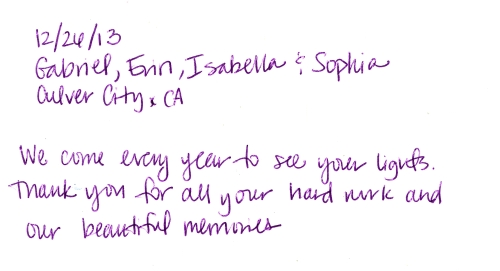 12/26/13
Gabriel, Erin, Isabella & Sophia
Culver City, CA
We come every year to see your lights.
Thank you for all your hard work and
our beautiful memories